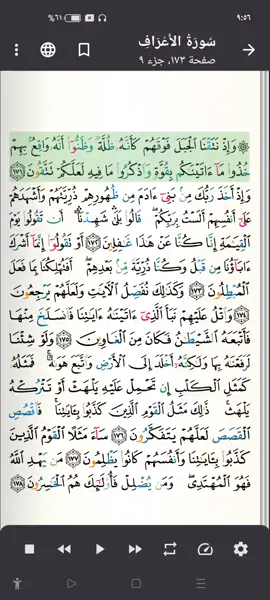 ٩:٥٦
٪٦١
سُورَةُ الأَعْرَافِ
صفحة ١٧٣، جزء ٩
۞ وَإِذْ نَتَقْنَا الْجَبَلَ فَوْقَهُمْ كَأَنَّهُ ظُلَّةٌ وَظَنُّوا أَنَّهُ وَاقِعٌ بِهِمْ
خُذُوا مَا ءَاتَيْنَاكُم بِقُوَّةٍ وَاذْكُرُوا مَا فِيهِ لَعَلَّكُمْ تَتَّقُونَ ١٧١
وَإِذْ أَخَذَ رَبُّكَ مِن بَنِي ءَادَمَ مِن ظُهُورِهِمْ ذُرِّيَّتَهُمْ وَأَشْهَدَهُمْ
عَلَى أَنفُسِهِمْ أَلَسْتُ بِرَبِّكُمْ قَالُوا بَلَى شَهِدْنَا أَن تَقُولُوا يَوْمَ
الْقِيَامَةِ إِنَّا كُنَّا عَنْ هَذَا غَافِلِينَ ١٧٢ أَوْ تَقُولُوا إِنَّمَا أَشْرَكَ
ءَابَاؤُنَا مِن قَبْلُ وَكُنَّا ذُرِّيَّةً مِّن بَعْدِهِمْ أَفَتُهْلِكُنَا بِمَا فَعَلَ
الْمُبْطِلُونَ ١٧٣ وَكَذَلِكَ نُفَصِّلُ الْآيَاتِ وَلَعَلَّهُمْ يَرْجِعُونَ
١٧٤ وَاتْلُ عَلَيْهِمْ نَبَأَ الَّذِي ءَاتَيْنَاهُ ءَايَاتِنَا فَانسَلَخَ مِنْهَا
فَأَتْبَعَهُ الشَّيْطَانُ فَكَانَ مِنَ الْغَاوِينَ ١٧٥ وَلَوْ شِئْنَا
لَرَفَعْنَاهُ بِهَا وَلَكِنَّهُ أَخْلَدَ إِلَى الْأَرْضِ وَاتَّبَعَ هَوَاهُ فَمَثَلُهُ
كَمَثَلِ الْكَلْبِ إِن تَحْمِلْ عَلَيْهِ يَلْهَثْ أَوْ تَتْرُكْهُ
يَلْهَث ذَّلِكَ مَثَلُ الْقَوْمِ الَّذِينَ كَذَّبُوا بِآيَاتِنَا فَاقْصُصِ
الْقَصَصَ لَعَلَّهُمْ يَتَفَكَّرُونَ ١٧٦ سَاءَ مَثَلًا الْقَوْمُ الَّذِينَ
كَذَّبُوا بِآيَاتِنَا وَأَنفُسَهُمْ كَانُوا يَظْلِمُونَ ١٧٧ مَن يَهْدِ اللَّهُ
فَهُوَ الْمُهْتَدِي وَمَن يُضْلِلْ فَأُولَئِكَ هُمُ الْخَاسِرُونَ ١٧٨